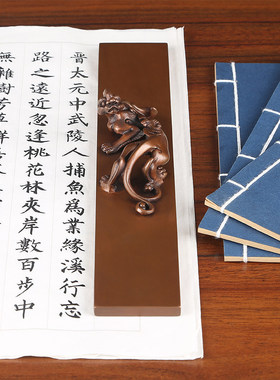 晉太元中武陵人捕魚爲業緣溪行忘
路之遠近忽逢桃花林夾岸數百步中
無雜樹芳